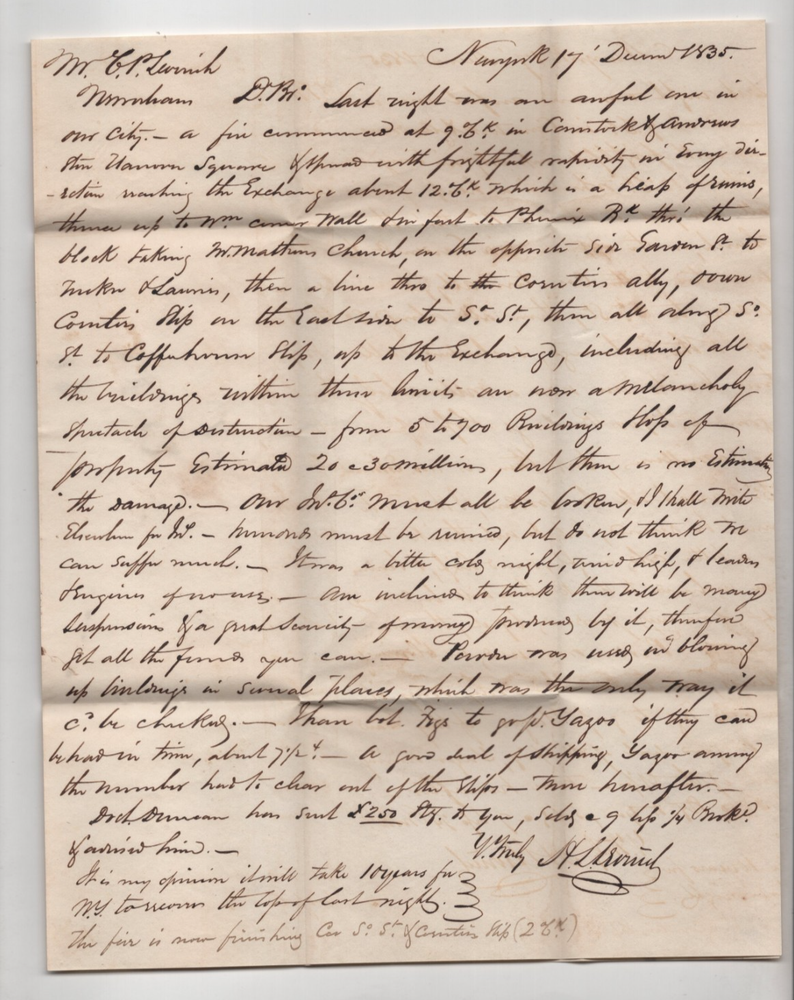 Mr. C. P. Leverich Newyork 17' Decemr 1835.
Dr. Br. Last night was an awful one in
our City. — a fire commenced at 9 o'Ck in Comstock & Andrews
Store Hanover Square & spread with frightful rapidity in Every dir-
-ection reaching the Exchange about 12 o'Ck which is a heap of ruins,
thence up to Wm corner Wall & in fact to Phenix Bk thro' the
block taking Mr. Mathews Church, on the opposite side Garden St. to
& Lawries, then a line thro to the Coenties ally, down
Coenties Slip on the East side to So. St, then all along So.
St. to Coffeehouse Slip, up to the Exchange, including all
the buildings within these limits are now a melancholy
spectacle of destruction — from 5 to 700 Buildings Loss of
property Estimated 20 a 30 millions, but there is no Estimating
the damage. — Our Ins. Cos. must all be broken, & I shall write
Elsewhere for Ins. — must be ruined, but do not think we
can suffer much. — It was a bitter cold night, wind high, &
& Engines of no use. — Am inclined to think there will be money
suspensions & a great scarcity of money produced by it, therefore
get all the funds you can. — Powder was used in blowing
up buildings in several places, which was the only way it
cd. be checked. — I have bot. Figs to go pr. Yazoo if they can
be had in time, about 7 1/2 ¢. — A good deal of shipping, Yazoo among
the number had to clear out of the slips — more hereafter. —
Doct Duncan has sent £250 Stg. to you, sold @ 9 1/4 Brokg.
& advised him. —
Y. Truly H. S. Leverich
It is my opinion it will take 10 years for
N.Y. to recover the loss of last night.
The fire is now finishing Cor So. St. & Coenties Slip (2 o'Ck)